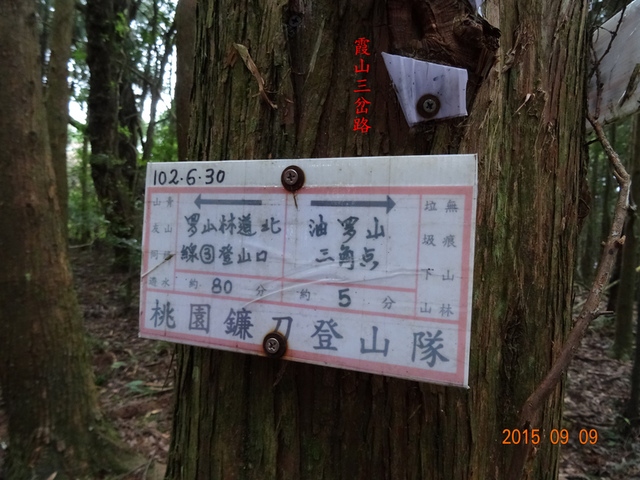 霞山三岔路
102.6.30
←
→
罗山林道北
線③登山口
約 80 分
油罗山
三角点
約 5 分
無痕山林
垃圾下山
桃園鐮刀登山隊
2015 09 09